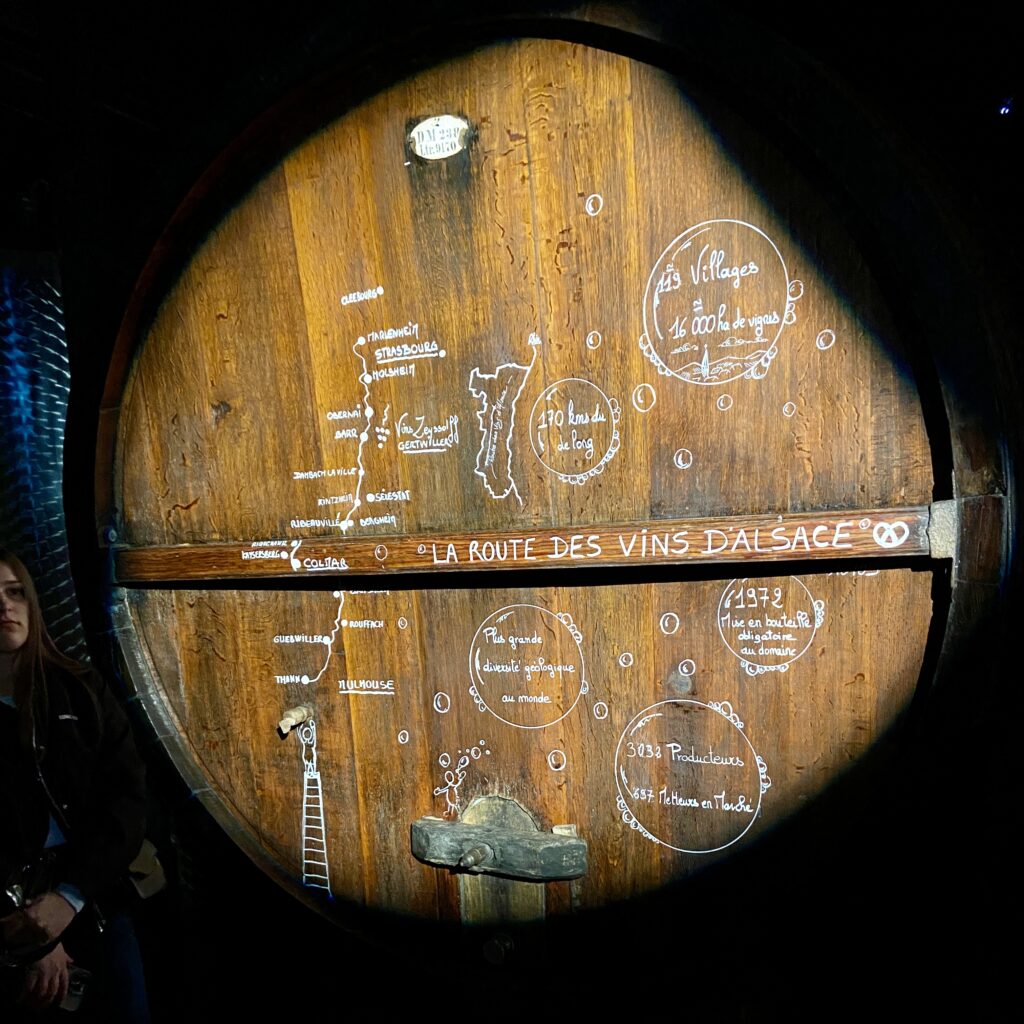 2
DM 238
Ltr.9170
119 Villages
16 000 ha de vignes
CLEEBOURG
MARLENHEIM
STRASBOURG
MOLSHEIM
OBERNAI
BARR
Vins Zeyssolff
GERTWILLER
170 kms du
de long
DAMBACH LA VILLE
SÉLESTAT
RIBEAUVILLÉ
BERGHEIM
KAYSERSBERG
COLMAR
LA ROUTE DES VINS D'ALSACE
1972
Mise en bouteille
obligatoire
au domaine
ROUFFACH
GUEBWILLER
THANN
MULHOUSE
Plus grande
diversité géologique
au monde
Producteurs
697 Metteurs en Marché